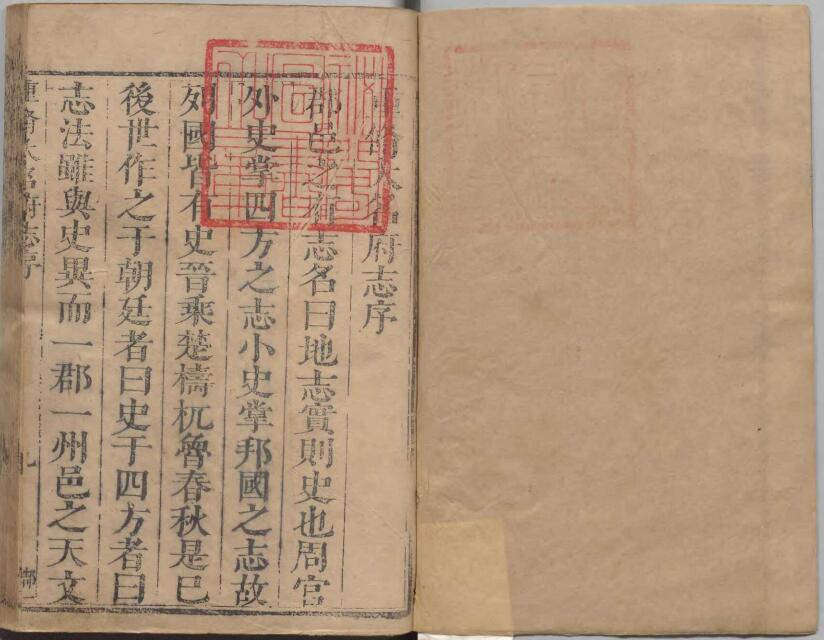 重脩大名府志序
郡邑之有志名曰地志實則史也周官
外史掌四方之志小史掌邦國之志故
列國皆有史晉乘楚檮杌魯春秋是已
後世作之于朝廷者曰史于四方者曰
志法雖與史異而一郡一州邑之天文
重脩大名府志序